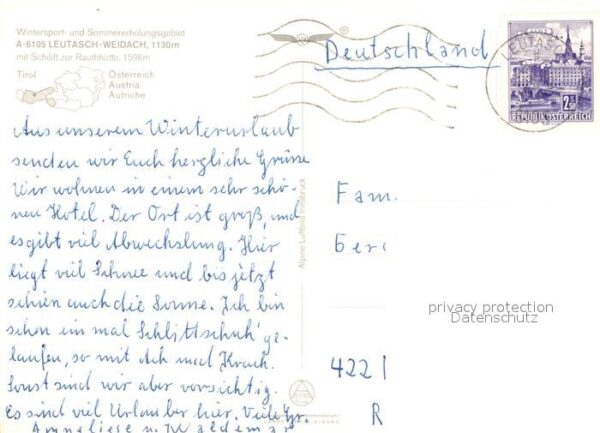 Wintersport- und Sommererholungsgebiet
A-6105 LEUTASCH-WEIDACH, 1130m
mit Schilift zur Rauthhütte, 1598m
Tirol
Österreich
Austria
Autriche
Deutschland
LEUTASCH
REPUBLIK ÖSTERREICH
Aus unserem Winterurlaub
senden wir Euch herzliche Grüsse
Wir wohnen in einem sehr schö-
nen Hotel. Der Ort ist groß, und
es gibt viel Abwechslung. Hier
liegt viel Schnee und bis jetzt
schien auch die Sonne. Ich bin
schon ein mal Schlittschuh ge-
laufen, so mit Ach und Krach.
Sonst sind wir aber vorsichtig.
Es sind viel Urlauber hier. Viele Gr.
Anneliese u. Waldemar
Alpine Luftbild Innsbruck
Fam.
Ger
422
R
privacy protection
Datenschutz